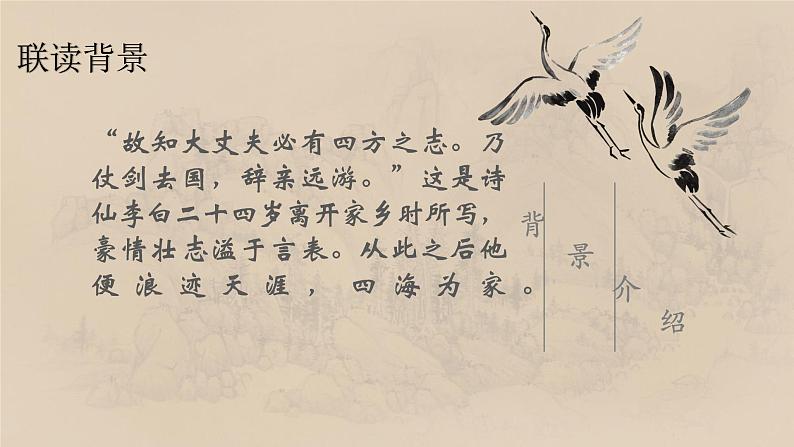 联读背景
“故知大丈夫必有四方之志。乃
仗剑去国，辞亲远游。”这是诗
仙李白二十四岁离开家乡时所写，
豪情壮志溢于言表。从此之后他
便浪迹天涯，四海为家。
背景介绍